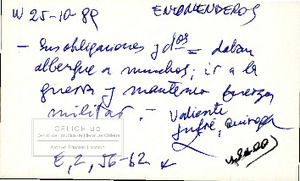 W 25-10-89 ENCOMENDEROS
- Sus obligaciones y dºs = daban
albergue a muchos; ir a la
guerra y mantener fuerza
militar. - Valiente
Jufré, Quiroga
CELICH UC
E, 2, 56-62